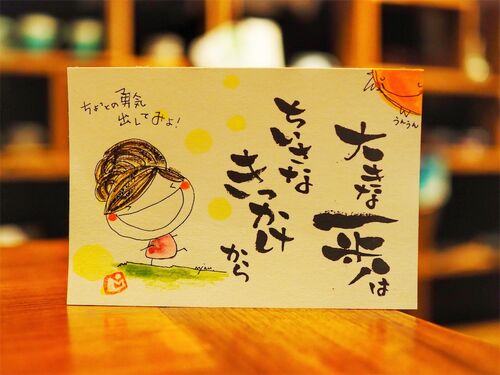 大きな一歩は
ちいさな
きっかけ
から
ちょっとの勇気
出してみよ!
うんうん